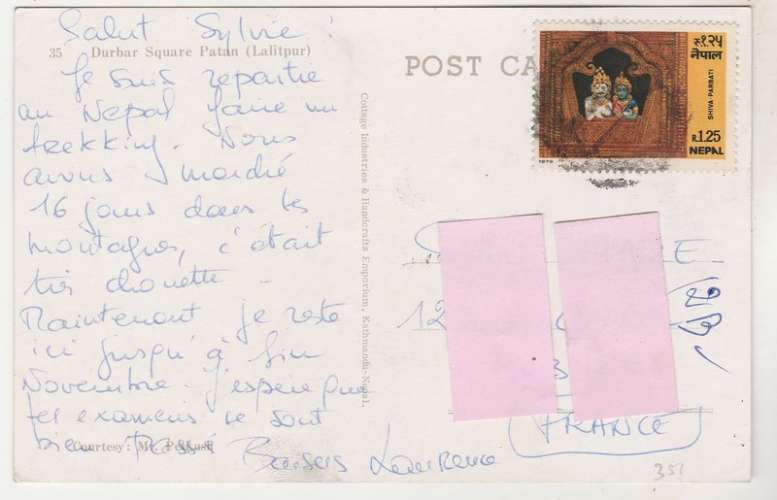 Salut Sylvie !
35 Durbar Square Patan (Lalitpur)
Je suis repartie
au Nepal faire un
trekking. Nous
avons marché
16 jours dans les
montagnes, c'était
très chouette.
Maintenant je reste
ici jusqu'à fin
Novembre. J'espère que
tes examens se sont
bien passé
Courtesy: Mr.
Baisers Laurence
Cottage Industries & Handicrafts Emporium, Kathmandu-Nepal.
POST CA
रु. १.२५
नेपाल
SHIVA-PARBATI
R 1.25
NEPAL
1979
E
12
B
FRANCE
351